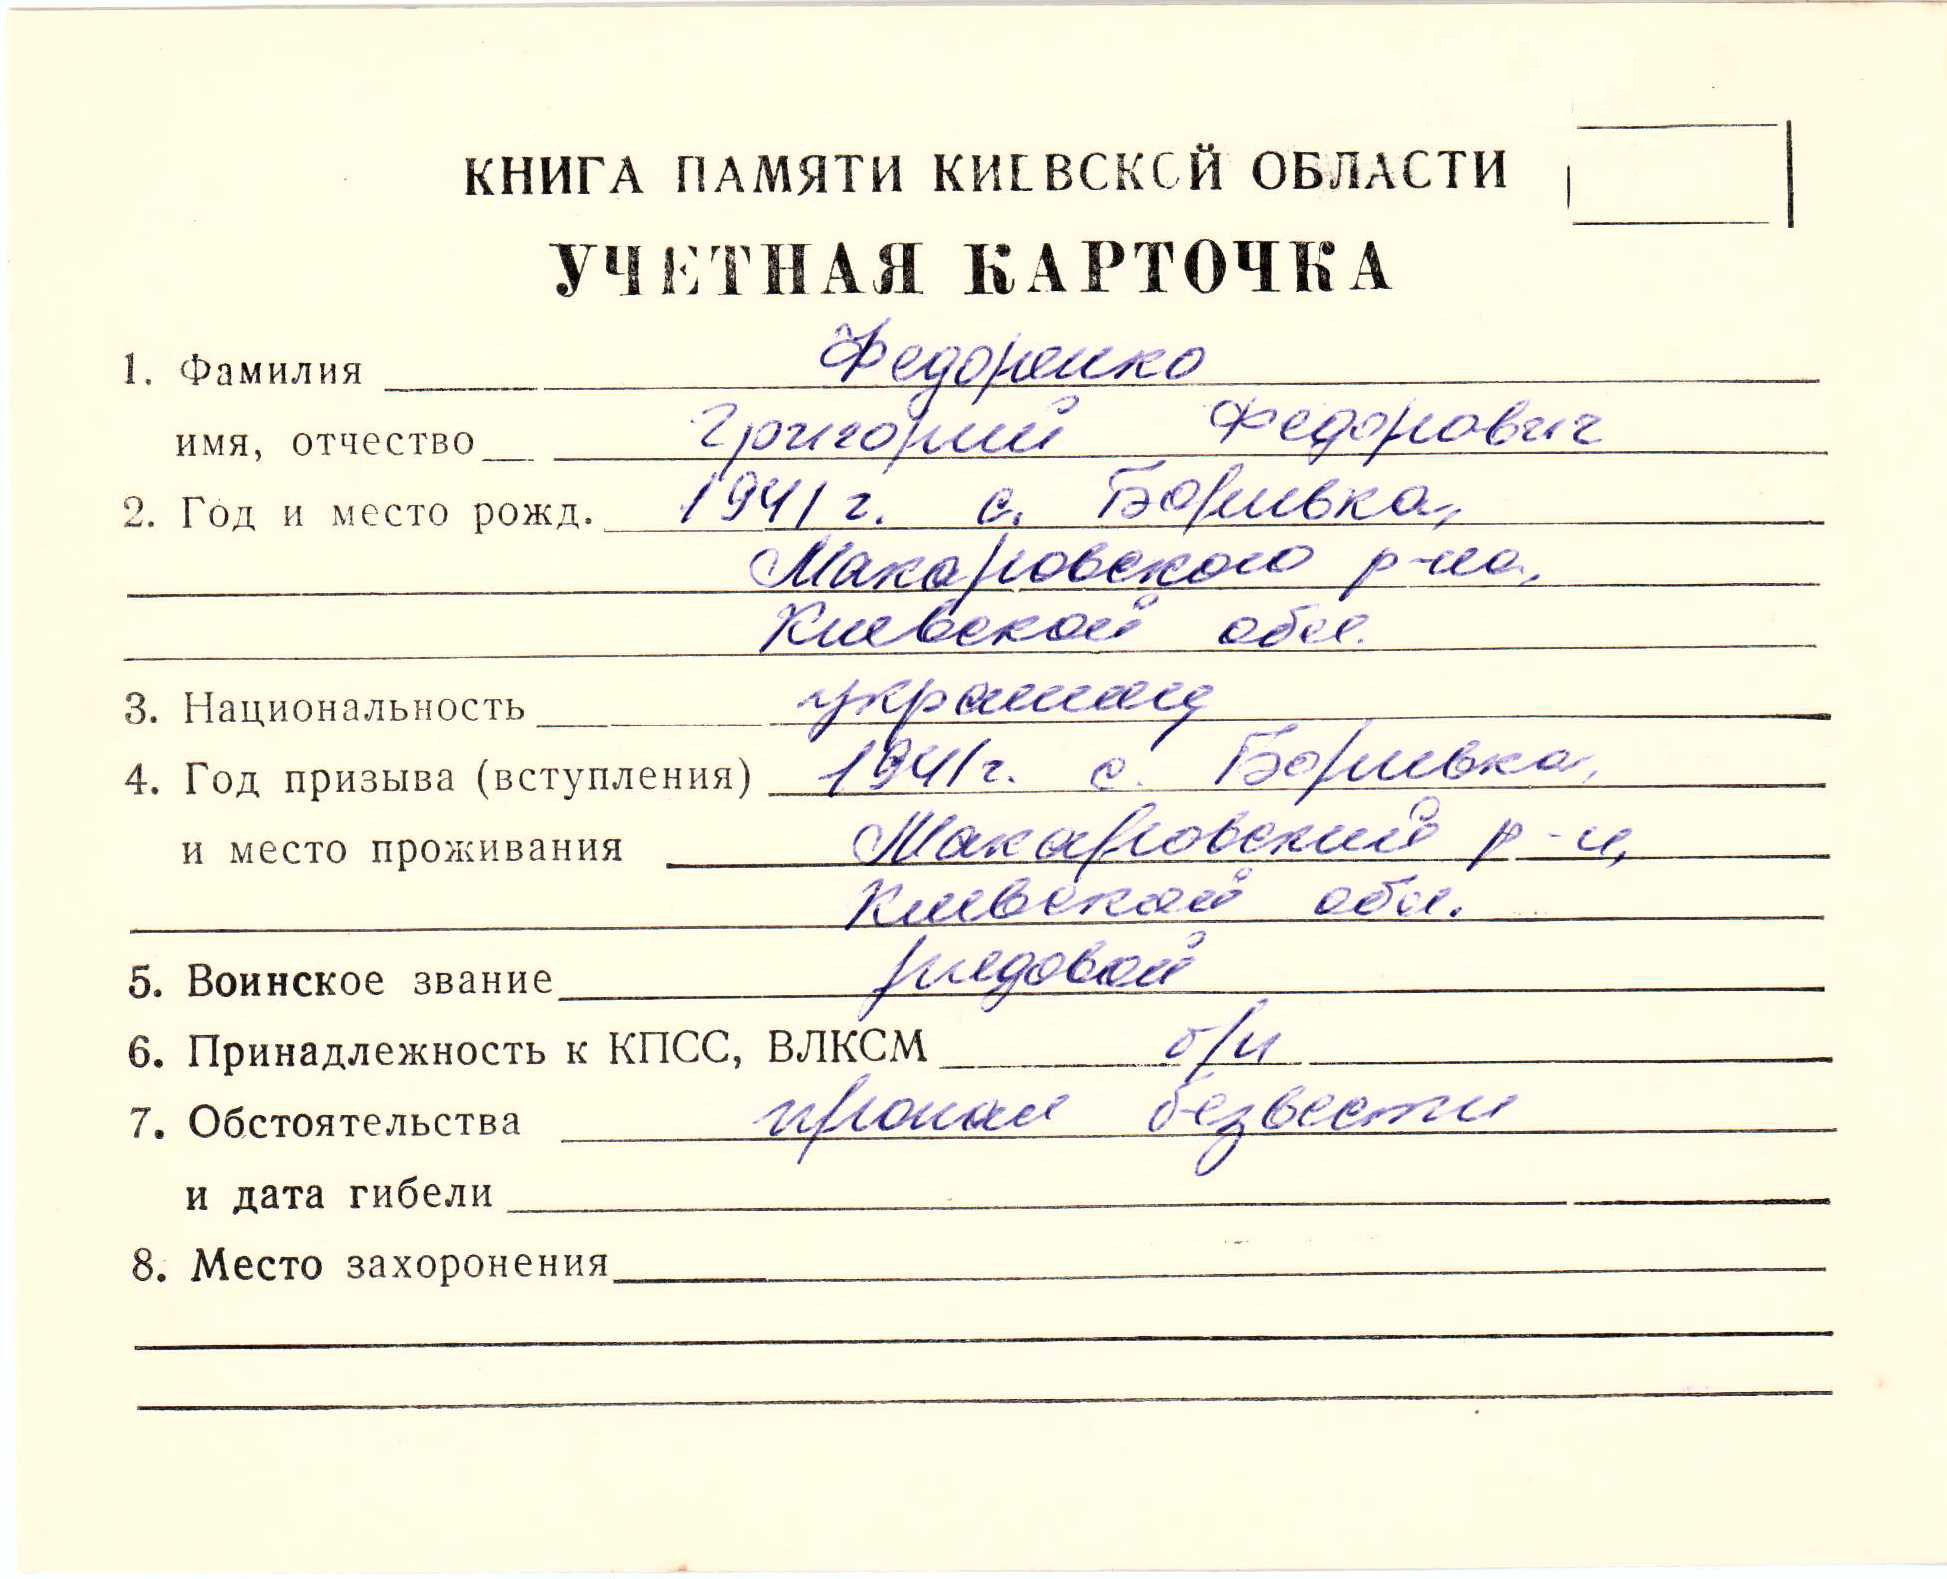 КНИГА ПАМЯТИ КИЕВСКОЙ ОБЛАСТИ
УЧЕТНАЯ КАРТОЧКА
1. Фамилия Федоренко
имя, отчество Григорий Федорович
2. Год и место рожд. 1941 г. с. Боривка,
Макаровского р-на,
Киевской обл.
3. Национальность украинец
4. Год призыва (вступления) 1941 г. с. Боривка,
и место проживания Макаровский р-н,
Киевской обл.
5. Воинское звание рядовой
6. Принадлежность к КПСС, ВЛКСМ б/п
7. Обстоятельства пропал безвести
и дата гибели
8. Место захоронения